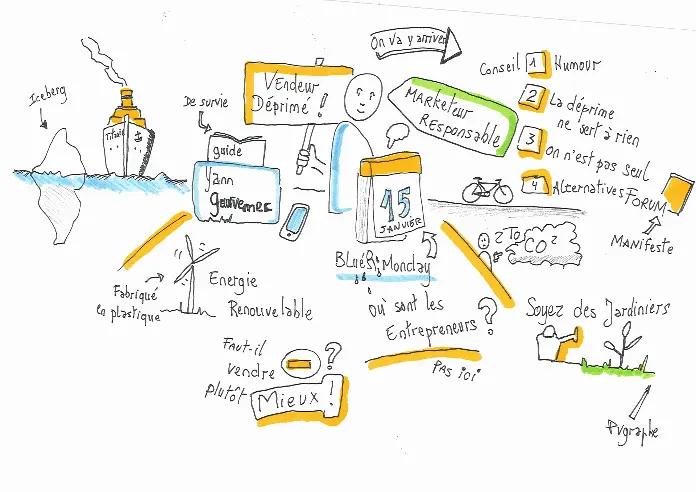 On va y arriver
Iceberg
Titanic
De survie
guide
Yann
Vendeur
Déprimé !
Marketeur
Responsable
Conseil 1 Humour
2 La déprime
ne sert à rien
3 On n'est pas seul
4 Alternatives
Forum
Manifeste
15
JANVIER
Blue Monday
2 To
CO2
Fabriqué
en plastique
Energie
Renouvelable
où sont les
Entrepreneurs ?
PAS ici
Soyez des Jardiniers
Faut-il
vendre
plutôt
Mieux !
?
Pygraphe